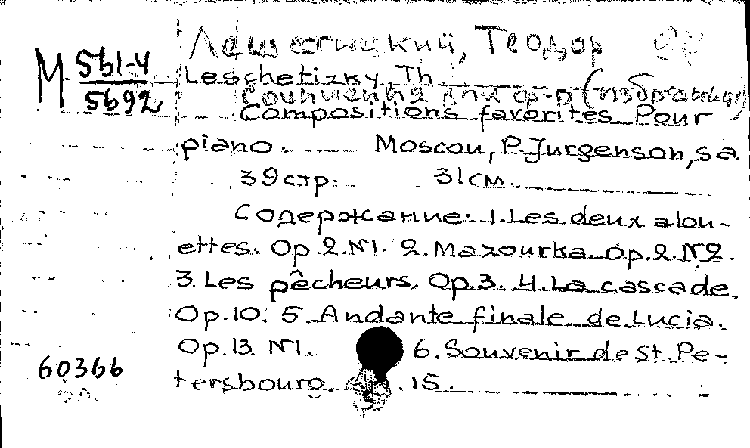 Лешетицкий, Теодор
М 561-4
5692
Leschetizky, Th
Сочинения для ф-п (избранные)
Compositions favorites Pour
piano. Moscou, P. Jurgenson, s.a.
39 стр. 31 см.
Содержание: 1. Les deux alou-
ettes. Op. 2. N1. 2. Mazourka. Op. 2. N2.
3. Les pêcheurs. Op. 3. 4. La cascade.
Op. 10. 5. Andante finale de Lucia.
Op. 13 N1. 6. Souvenir de St. Pe-
tersbourg. 15.
60366